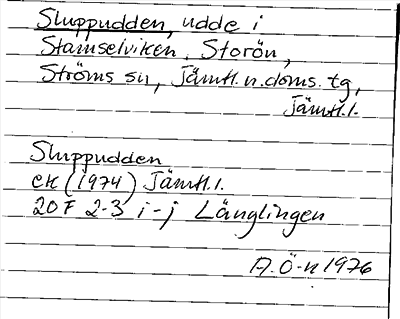 Sluppudden, udde i
Stamselviken, Storön,
Ströms sn, Jämtl.n.doms.tg,
Jämtl.l.
Sluppudden
ek (1974) Jämtl.l.
20F 2-3 i-j Länglingen
A.Ö-n 1976